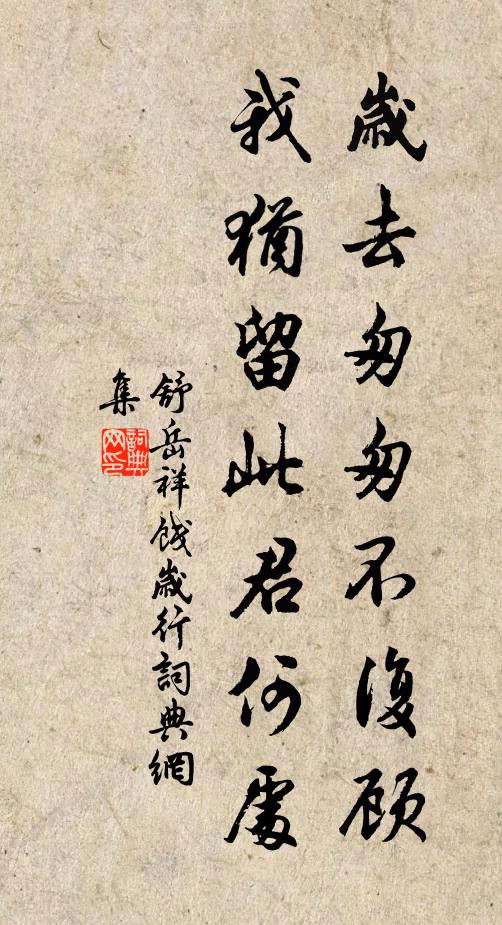 歲去匆匆不復顧
我猶留此君何處
舒岳祥餞歲行詞典網
集
詞典
网印